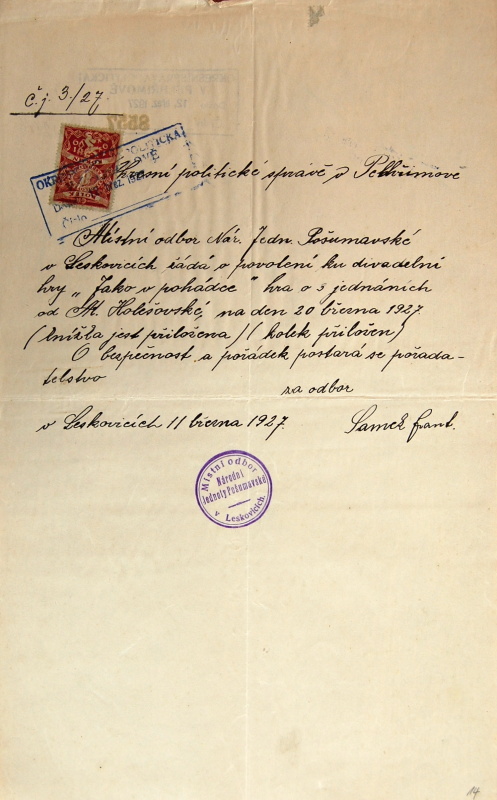 č. j. 3./27.
OKRESNÍ POLITICKÁ
Okresní politické správě v Pelhřimově
Místní odbor Nár. Jedn. Pošumavské
v Leskovicích žádá o povolení ku divadelní
hry „Jako v pohádce" hra o 5 jednáních
od M. Holešovské, na den 20 března 1927.
(knížka jest přiložena) (kolek přiložen)
O bezpečnost a pořádek postará se pořada-
telstvo
za odbor
v Leskovicích 11 března 1927.
Samek Frant.
Místní odbor
Národní
Jednoty Pošumavské
v Leskovicích.
14